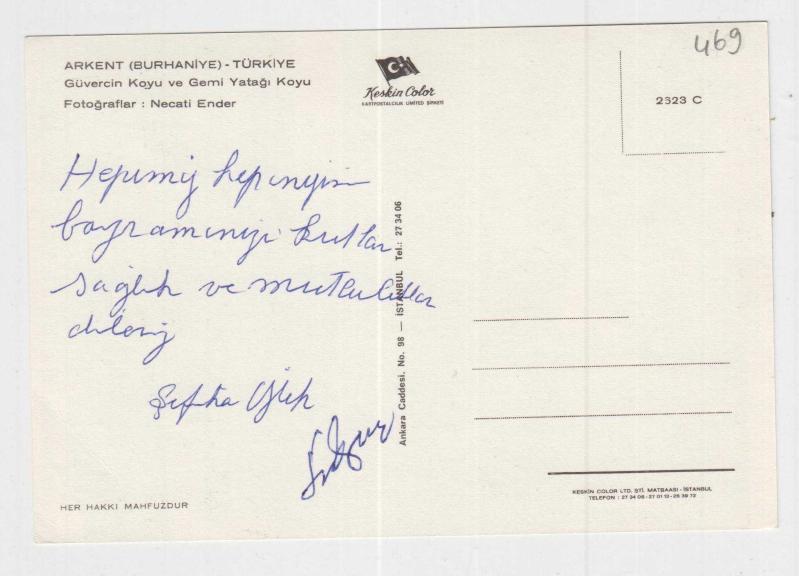 ARKENT (BURHANİYE) - TÜRKİYE
Güvercin Koyu ve Gemi Yatağı Koyu
Fotoğraflar : Necati Ender
Keskin Color
KARTPOSTALCILIK LİMİTED ŞİRKETİ
469
2323 C
Hepimiz hepinizin
bayramınızı kutlar
sağlık ve mutluluklar
dileriz
Ankara Caddesi. No. 98 — İSTANBUL Tel.: 27 34 06
KESKİN COLOR LTD. ŞTİ. MATBAASI - İSTANBUL
HER HAKKI MAHFUZDUR